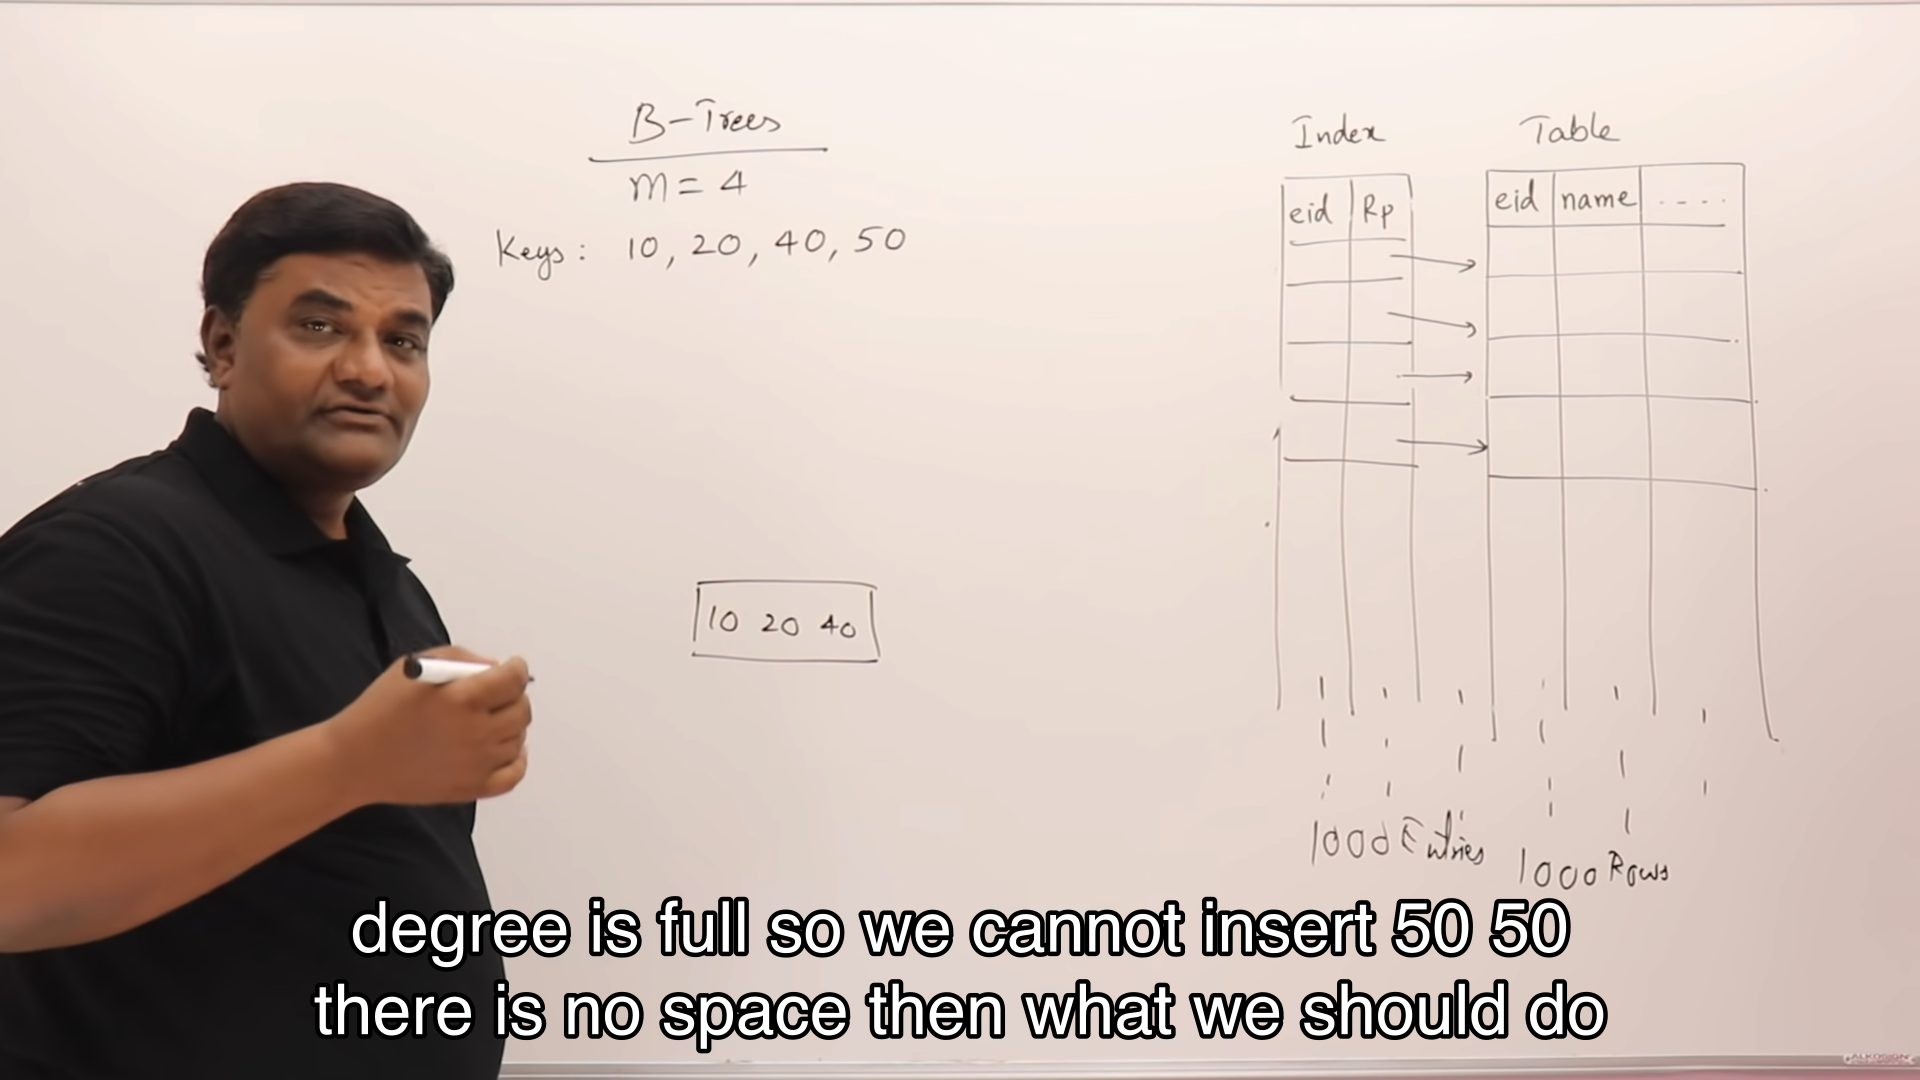 B-Trees
m = 4
Keys: 10, 20, 40, 50
10 20 40
Index
eid Rp
1000 Entries
Table
eid name ----
1000 Rows
degree is full so we cannot insert 50 50
there is no space then what we should do